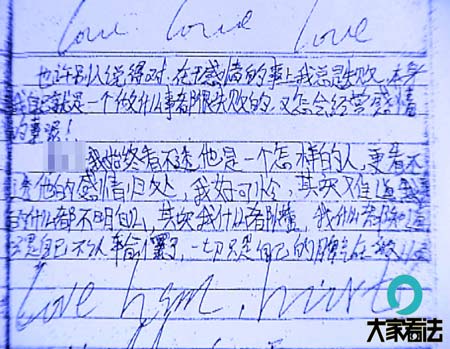 Love Love Love
也许别人说得对，在于感情的事上我总是失败，本身
我自己就是一个做什么事都很失败的，又怎会经营感情
的事呢！
我始终看不透他是一个怎样的人，更看不
透他的感情归处，我好可怜，其实难道我真
的什么都不明白么，其实我什么都懂，我什么都知道
只是自己不认命罢了，一切只是自己的脾气在
Love hurt
大家看法